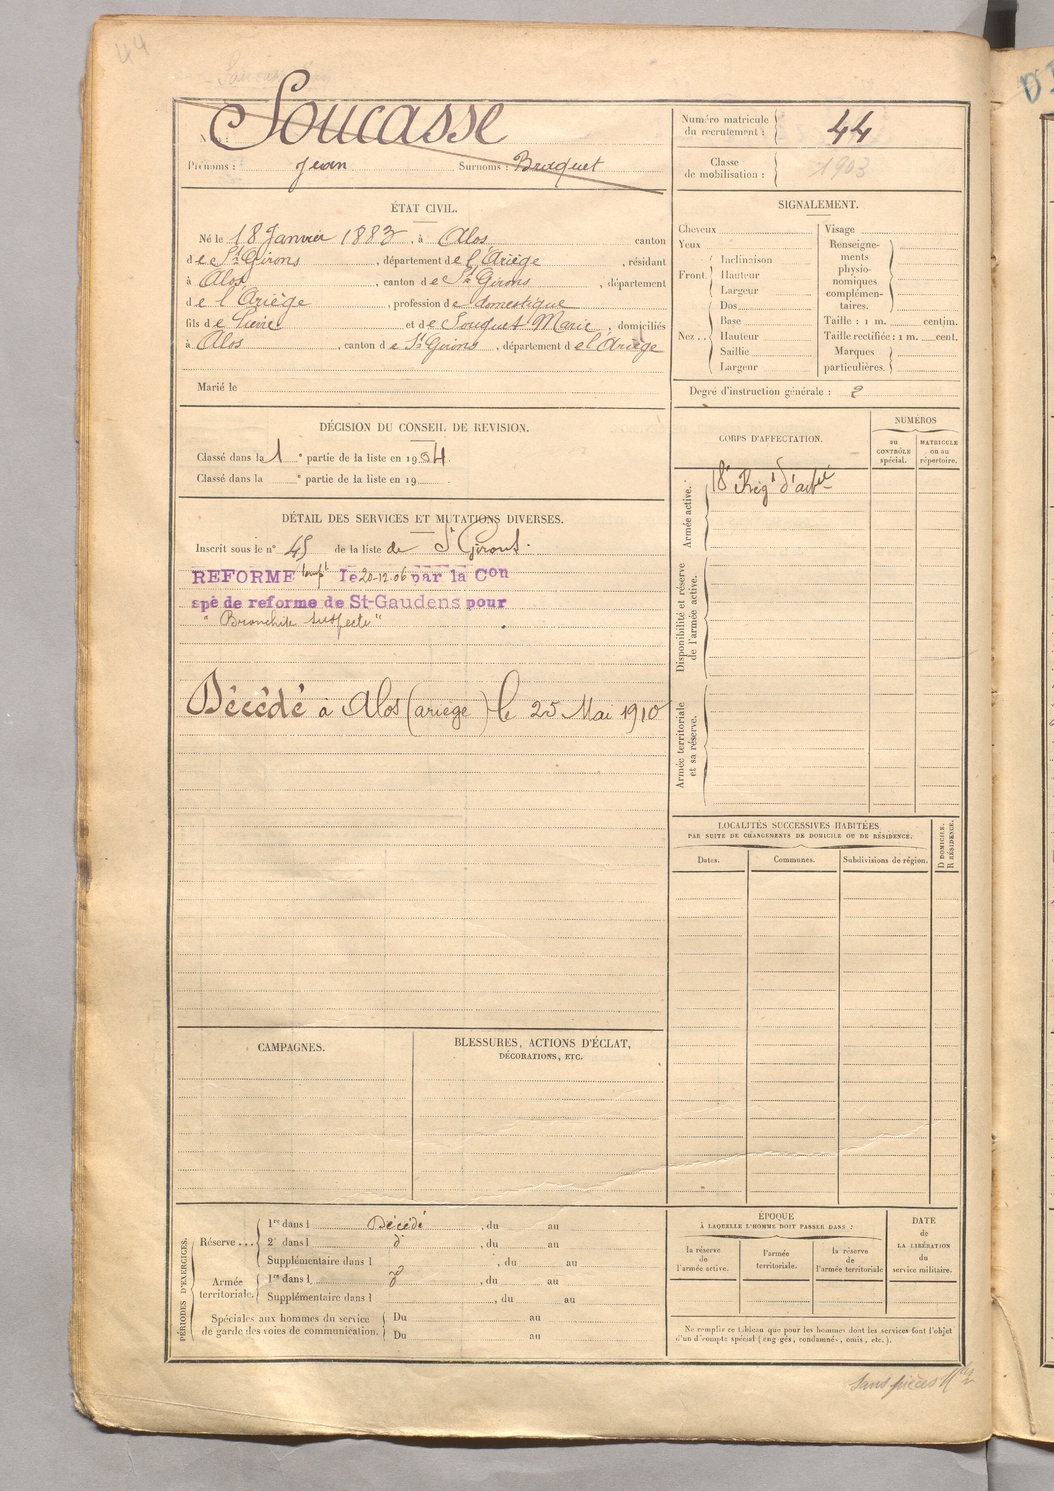 44
Soucasse
Nom :
Prénoms : Jean Surnoms : Braquet
Numéro matricule
du recrutement : 44
Classe
de mobilisation : 1903
ÉTAT CIVIL.
Né le 18 Janvier 1883, à Alos canton
de St Girons, département de l'Ariège, résidant
à Alos, canton de St Girons, département
de l'Ariège, profession de domestique
fils de Pierre et de Souquet Marie, domiciliés
à Alos, canton de St Girons, département de l'Ariège
Marié le
SIGNALEMENT.
Cheveux
Yeux
Front
Inclinaison
Hauteur
Largeur
Nez ..
Dos
Base
Hauteur
Saillie
Largeur
Visage
Renseigne-
ments
physio-
nomiques
complémen-
taires.
Taille : 1 m. centim.
Taille rectifiée : 1 m. cent.
Marques
particulières.
Degré d'instruction générale : 2
DÉCISION DU CONSEIL DE REVISION.
Classé dans la 1e partie de la liste en 1904.
Classé dans la e partie de la liste en 19 .
DÉTAIL DES SERVICES ET MUTATIONS DIVERSES.
Inscrit sous le n° 45 de la liste de St Girons.
REFORME tempt le 20-12-06 par la Con
spé de reforme de St-Gaudens pour
" Bronchite suspecte "
Décédé à Alos (ariège) le 25 Mai 1910
CORPS D'AFFECTATION.
NUMÉROS
DU
CONTRÔLE
spécial.
MATRICULE
ou au
répertoire.
Armée active.
18e Régt d'artie
Disponibilité et réserve
de l'armée active.
Armée territoriale
et sa réserve.
LOCALITÉS SUCCESSIVES HABITÉES
PAR SUITE DE CHANGEMENTS DE DOMICILE OU DE RÉSIDENCE.
Dates.
Communes.
Subdivisions de région.
D DOMICILE.
R RÉSIDENCE.
CAMPAGNES.
BLESSURES, ACTIONS D'ÉCLAT,
DÉCORATIONS, ETC.
PÉRIODES D'EXERCICES.
Réserve ...
1re dans l Décédé, du au
2e dans l d°, du au
Supplémentaire dans l , du au
Armée
territoriale.
1re dans l d°, du au
Supplémentaire dans l , du au
Spéciales aux hommes du service
de garde des voies de communication.
Du au
Du au
ÉPOQUE
À LAQUELLE L'HOMME DOIT PASSER DANS :
la réserve
de
l'armée active.
l'armée
territoriale.
la réserve
de
l'armée territoriale
DATE
de
LA LIBÉRATION
du
service militaire.
Ne remplir ce tableau que pour les hommes dont les services font l'objet
d'un d'compte spécial (engagés, condamnés, omis, etc.).
Sans pièces